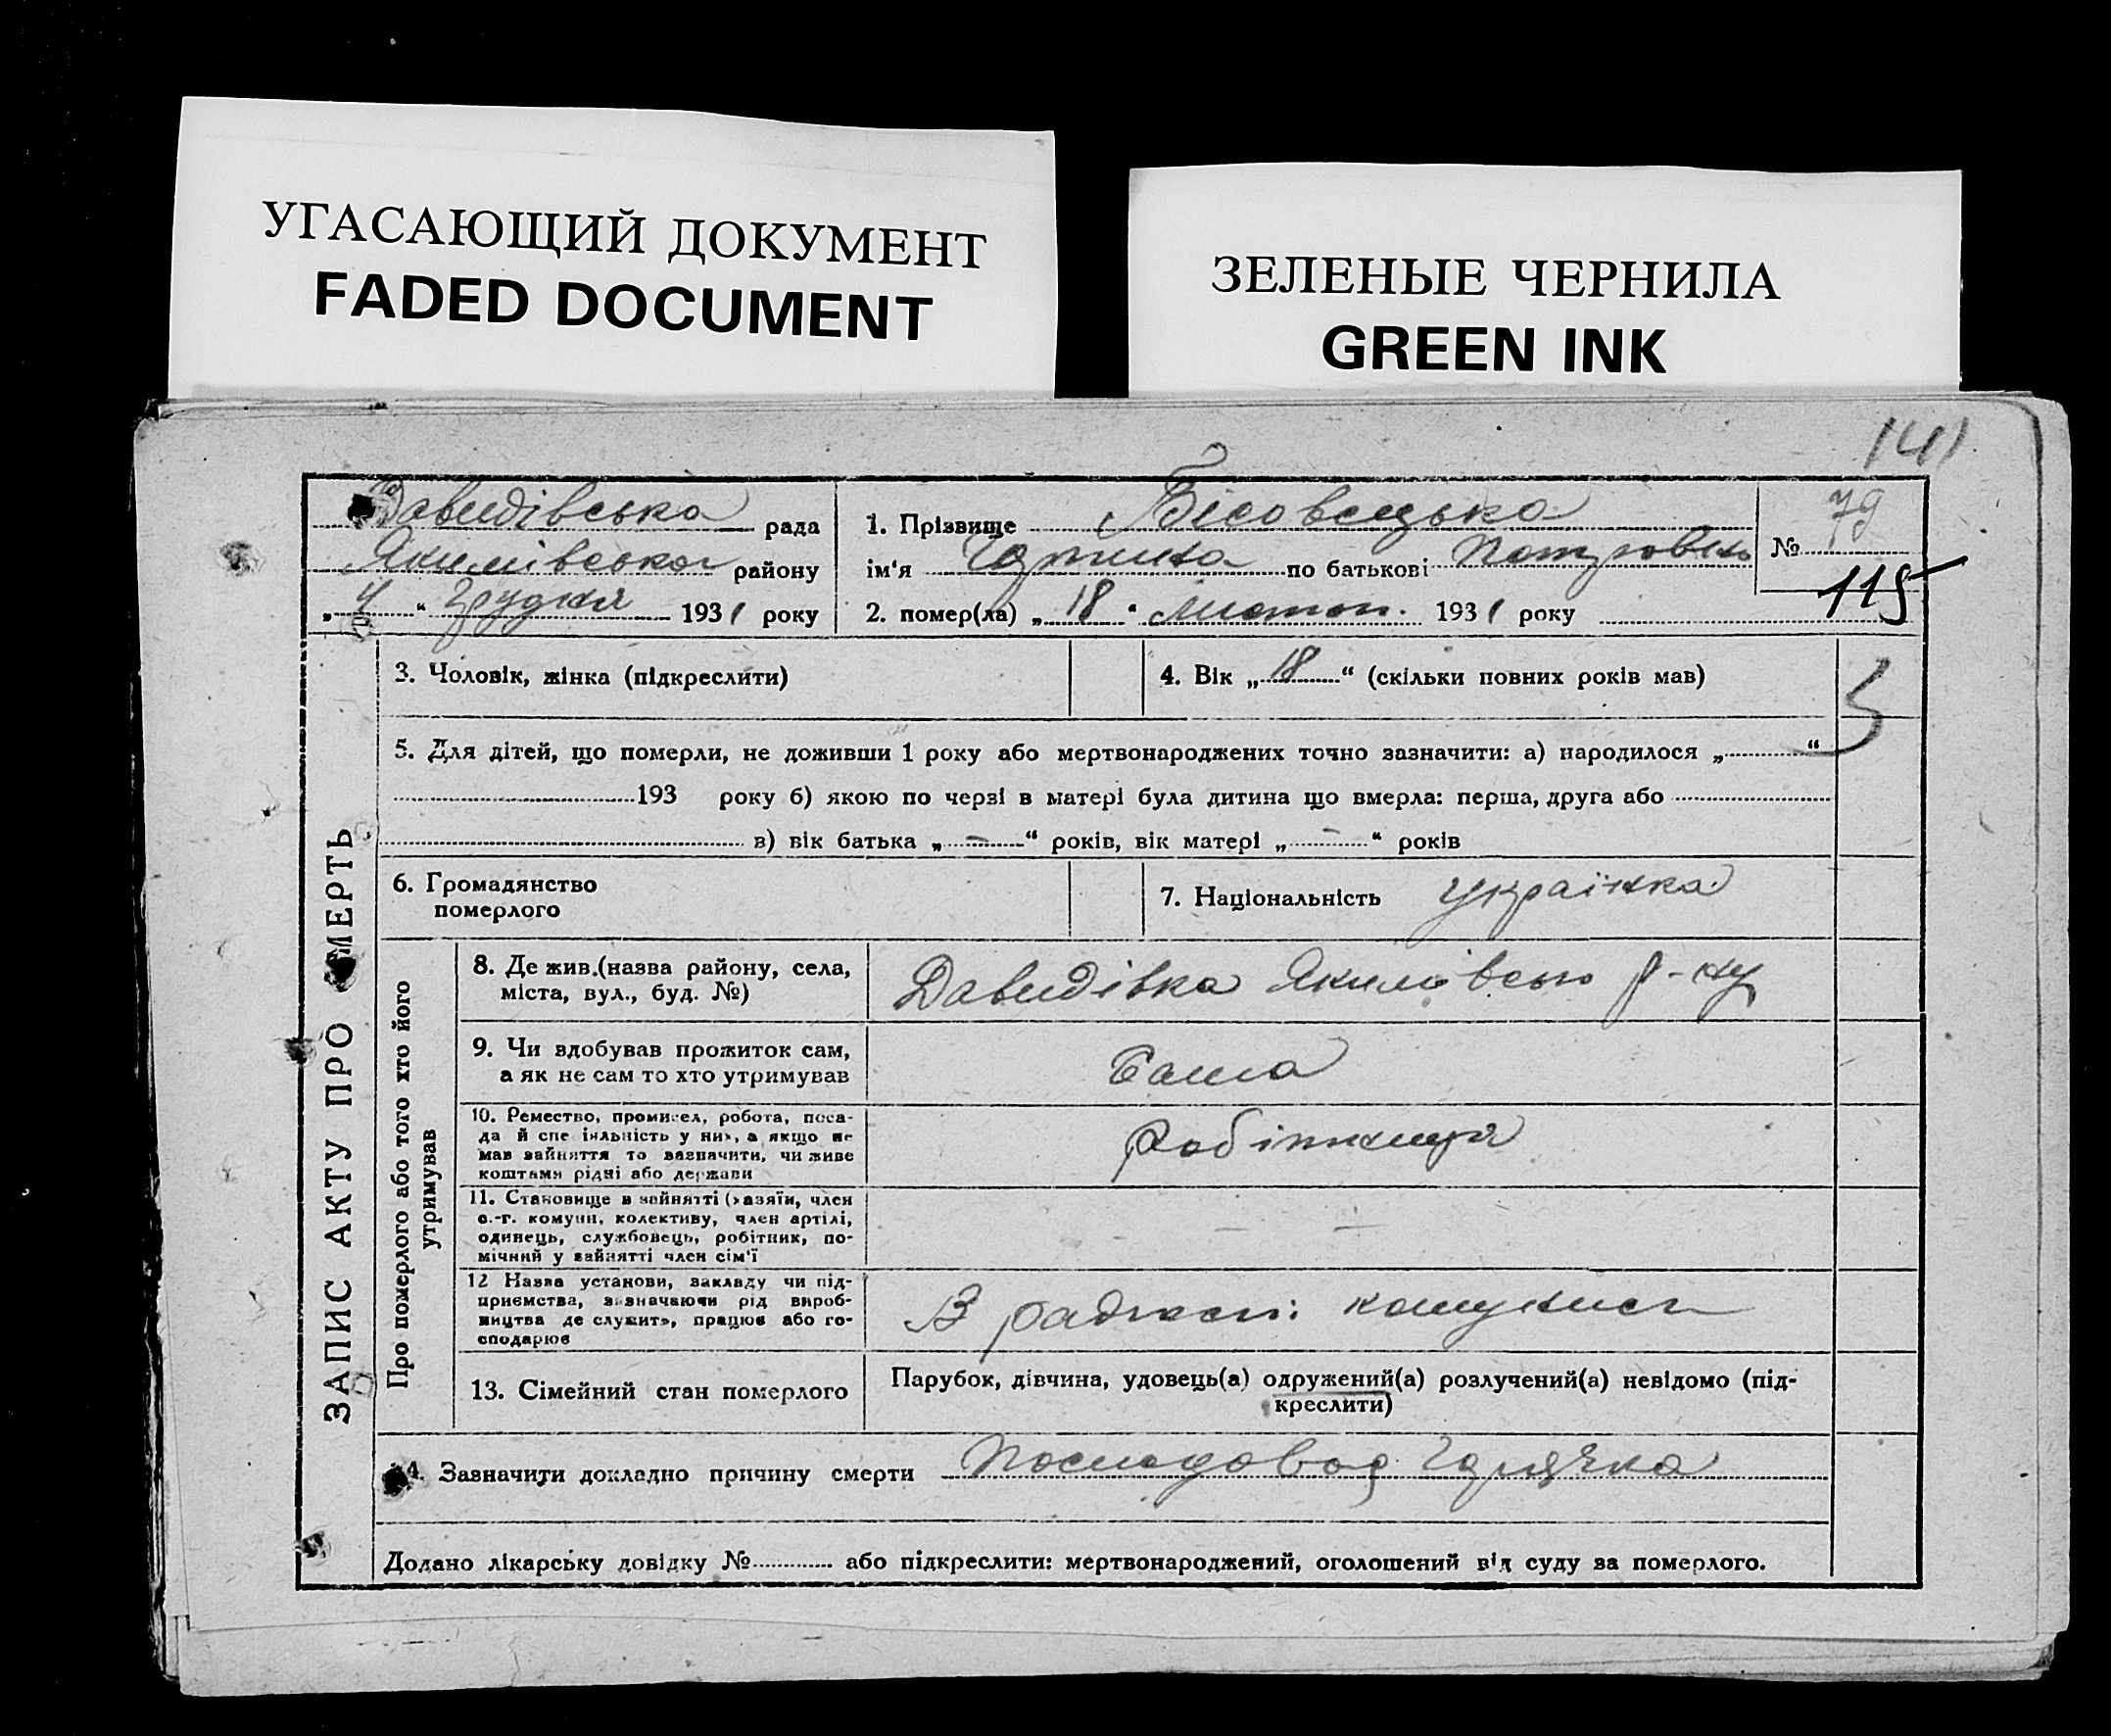 УГАСАЮЩИЙ ДОКУМЕНТ
FADED DOCUMENT
ЗЕЛЕНЫЕ ЧЕРНИЛА
GREEN INK
141
Давидівська рада
Якимівського району
„ 4 “ Грудня 1931 року
1. Прізвище Бісовецька
ім'я по батькові Петровна
2. помер(ла) „ 18 “ Листоп. 1931 року
№ 79
115
ЗАПИС АКТУ ПРО СМЕРТЬ
3. Чоловік, жінка (підкреслити)
4. Вік „ 18 “ (скільки повних років мав)
5. Для дітей, що померли, не доживши 1 року або мертвонароджених точно зазначити: а) народилося „ “
193 року б) якою по черзі в матері була дитина що вмерла: перша, друга або
в) вік батька „ – “ років, вік матері „ – “ років
6. Громадянство
померлого
7. Національність українка
Про померлого або того хто його
утримував
8. Де жив.(назва району, села,
міста, вул., буд. №)
Давидівка Якимівськ р-ну
9. Чи здобував прожиток сам,
а як не сам то хто утримував
Сама
10. Ремество, промисел, робота, поса-
да й спеціяльність у них, а якщо не
мав зайняття то зазначити, чи живе
коштами рідні або держави
Робітниця
11. Становище в зайнятті (хазяїн, член
с.-г. комуни, колективу, член артілі,
одинець, службовець, робітник, по-
мічний у зайнятті член сім'ї
– –
12 Назва установи, закладу чи під-
приємства, зазначаючи рід вироб-
ництва де служить, працює або го-
сподарює
В радгоспі комунист
13. Сімейний стан померлого
Парубок, дівчина, удовець(а) одружений(а) розлучений(а) невідомо (під-
креслити)
14. Зазначити докладно причину смерти горячка
Додано лікарську довідку № або підкреслити: мертвонароджений, оголошений від суду за померлого.